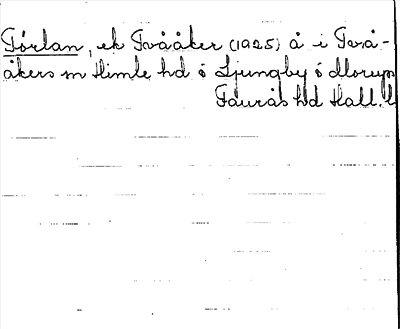 Törlan, ek Tvååker (1925) å i Tvåå-
åkers sn Himle hd ö Ljungby ö Morups
Faurås hd Hall. l